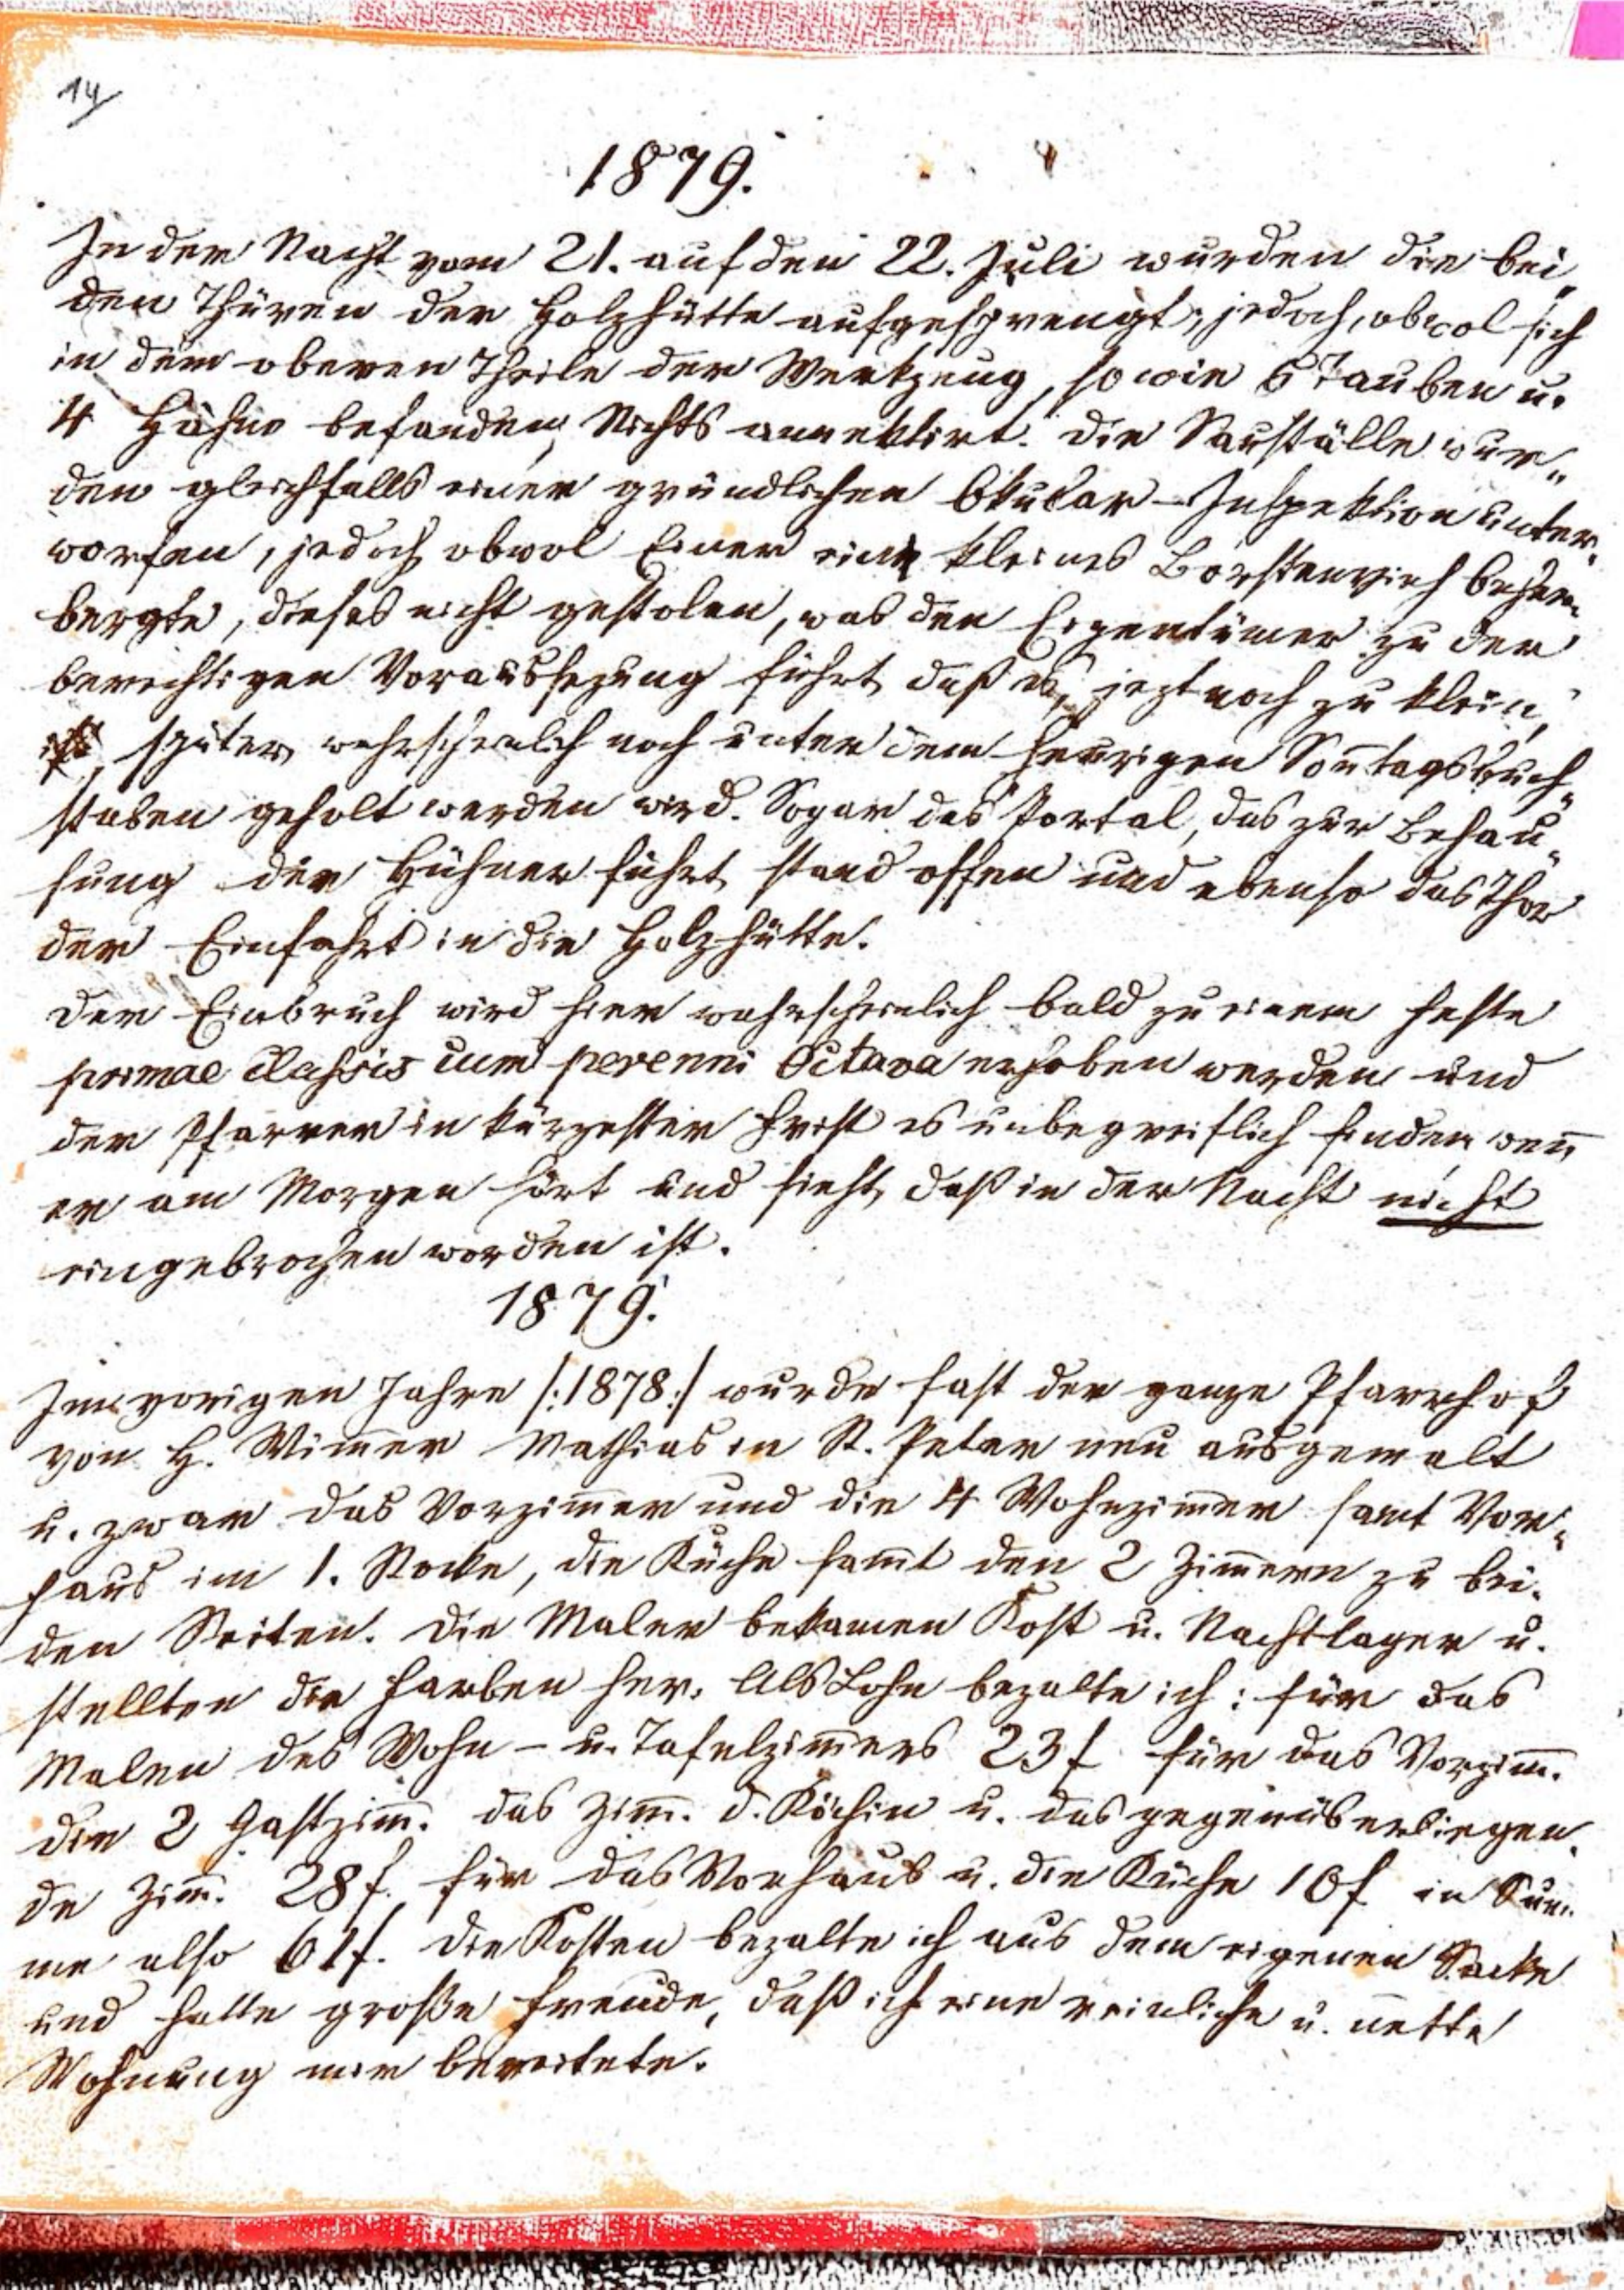 14
1879.
In der Nacht vom 21. auf den 22. Juli wurden die bei„
den Thüren der Holzhütte aufgesprengt, jedoch, obwol sich
in dem oberen Theile der Werkzeug, sowie 6 Tauben u.
4 Hähne befanden, Nichts annektirt. Die Sauställe wur„
den gleichfalls einer gründlichen Okular-Inspektion unter„
worfen, jedoch obwol Einer ein kleines Borstenvieh beher„
bergte, dieses nicht gestolen, was den Eigentümer zu der
berechtigen Voraussezung führt, daß es, jezt noch zu klein,
später wahrscheinlich noch unter dem heurigen Sontagsbuch„
staben geholt werden wird. Sogar das Portal, das zur Behau„
sung der Hühner führt, stand offen und ebenso das Thor
der Einfahrt in die Holzhütte.
Der Einbruch wird hier wahrscheinlich bald zu einem Feste
primae classis cum perenni Octava erhoben werden und
der Pfarrer in kürzester Frist es unbegreiflich finden, wen̄
er am Morgen hört und sieht, daß in der Nacht nicht
eingebrochen worden ist.
1879.
Im vorigen Jahre /:1878:/ wurde fast der ganze Pfarrhof
von H. Wim̄er Mathias in St. Peter neu ausgemalt
u. zwar das Vorzim̄er und die 4 Wohnzim̄er samt Vor„
haus im 1. Stocke, die Küche sam̄t den 2 Zim̄ern zu bei„
den Seiten. Die Maler bekamen Kost u. Nachtlager u.
stellten die Farben her. Als Lohn bezalte ich: für das
Malen des Wohn- u. Tafelzim̄ers 23 f für das Vorzim̄.
die 2 Gastzim̄. das Zim̄. d. Köchin u. das gegenüberliegen„
de Zim̄. 28 f. für das Vorhaus u. die Küche 10 f in Sum„
me also 61 f. Die Kosten bezalte ich aus dem eigenen Sacke
und hatte große Freude, daß ich eine reinliche u. nette
Wohnung mir bereitete.